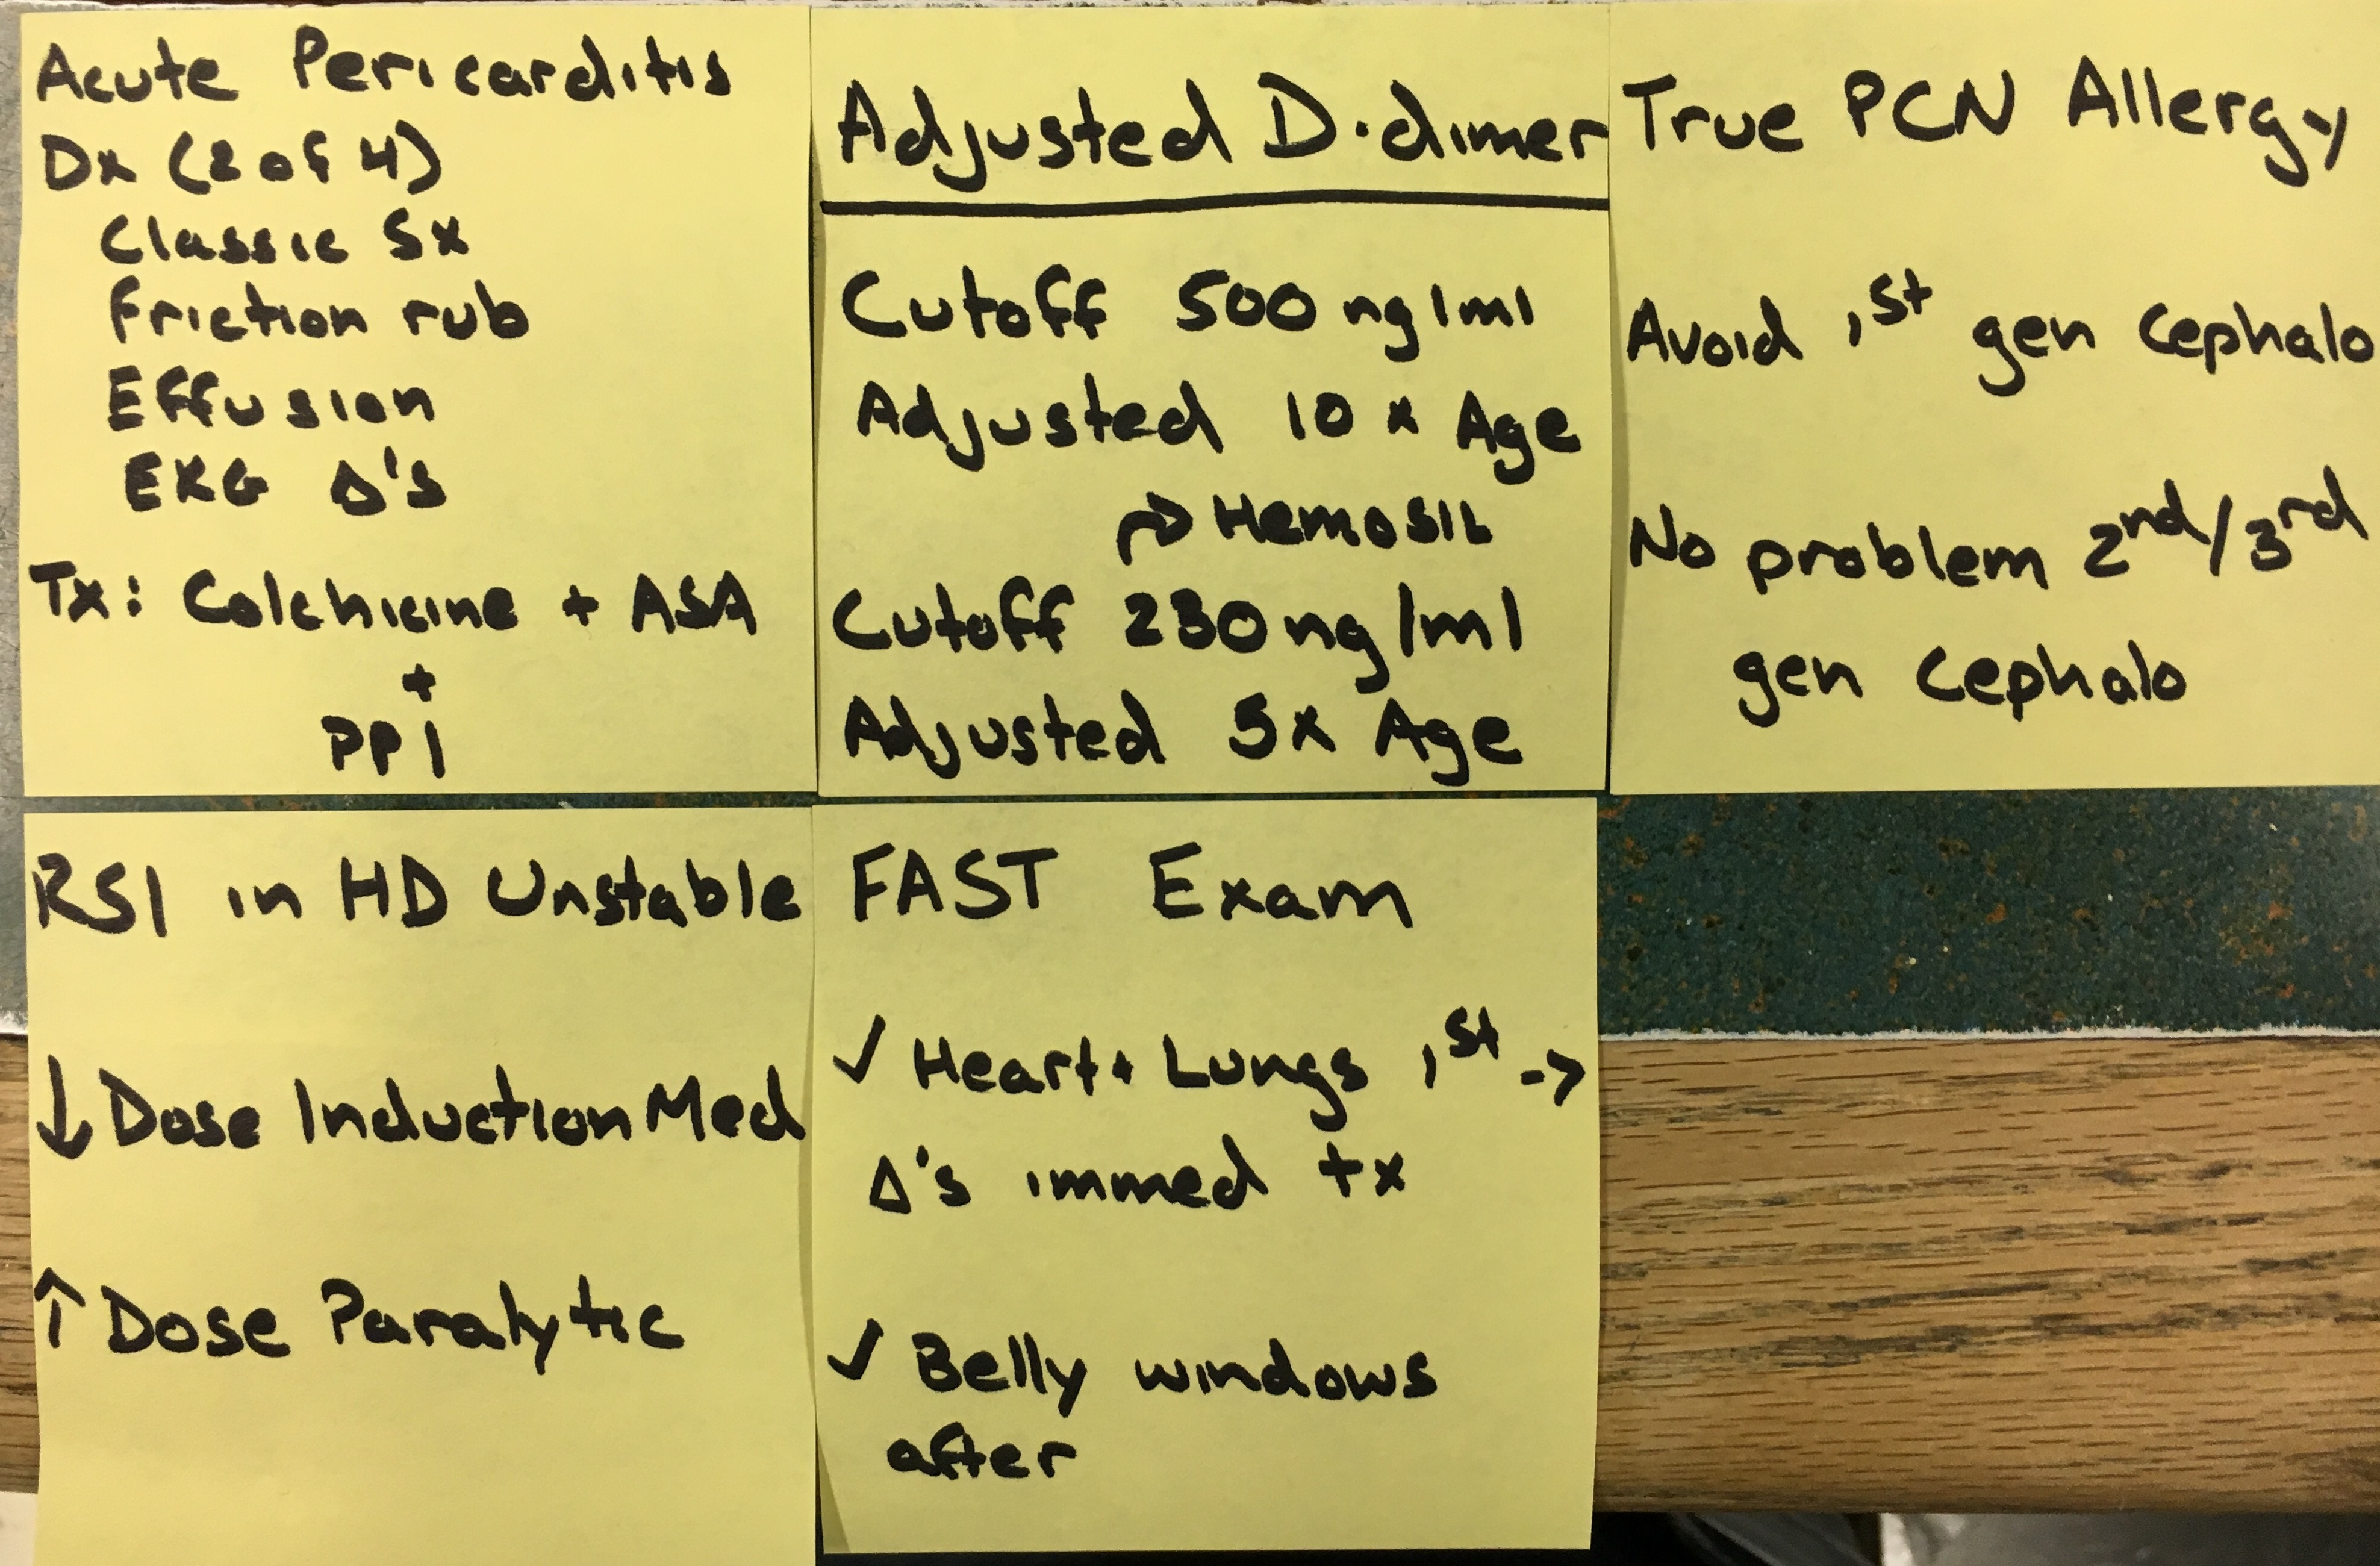 Acute Pericarditis
Dx (2 of 4)
Classic Sx
Friction rub
Effusion
EKG Δ's
Tx: Colchicine + ASA
+
PPI
Adjusted D-dimer
Cutoff 500 ng/ml
Adjusted 10 x Age
→ HemosIL
Cutoff 230 ng/ml
Adjusted 5x Age
True PCN Allergy
Avoid 1st gen cephalo
No problem 2nd/3rd
gen cephalo
RSI in HD Unstable
↓ Dose Induction Med
↑ Dose Paralytic
FAST Exam
✓ Heart + Lungs 1st →
Δ's immed tx
✓ Belly windows
after